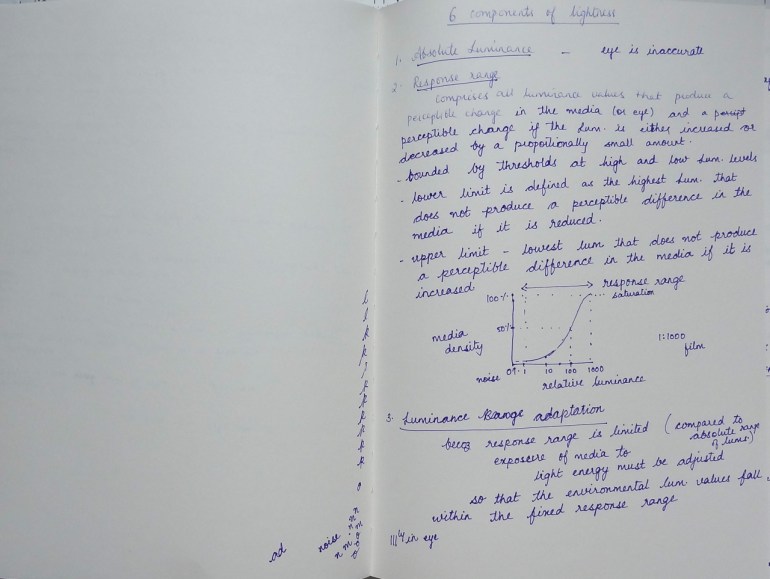 6 components of lightness
1. Absolute Luminance - eye is inaccurate
2. Response range
comprises all luminance values that produce a
perceptible change in the media (or eye) and a percept
perceptible change if the lum. is either increased or
decreased by a proportionally small amount.
- bounded by thresholds at high and low lum. levels
- lower limit is defined as the highest lum. that
does not produce a perceptible difference in the
media if it is reduced.
- upper limit - lowest lum that does not produce
a perceptible difference in the media if it is
increased
response range
100% saturation
50%
media
density
1:1000
film
noise 0.1 1 10 100 1000
relative luminance
3. Luminance Range adaptation
becoz response range is limited (compared to
absolute range
of lums)
exposure of media to
light energy must be adjusted
so that the environmental lum values fall
within the fixed response range
|||ly in eye
l
l
k
k
k
k
k
k
k
k
o
n
n
noise
n m
o
o
ad